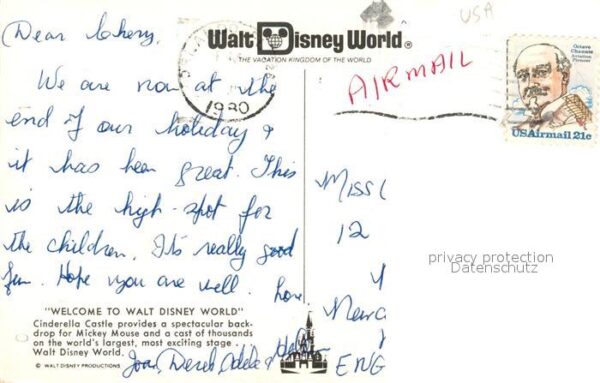 USA
Dear Chery,
Walt Disney World®
THE VACATION KINGDOM OF THE WORLD
1980
AIRMAIL
Octave
Chanute
Aviation
Pioneer
USAirmail 21c
We are now at the
end of our holiday &
it has been great. This
is the high-spot for
the children. It's really good
fun. Hope you are well. Love
"WELCOME TO WALT DISNEY WORLD"
Cinderella Castle provides a spectacular back-
drop for Mickey Mouse and a cast of thousands
on the world's largest, most exciting stage . . .
Walt Disney World.
© WALT DISNEY PRODUCTIONS
Joan, Derek, Adele &
Miss C
12
Newca
ENG
privacy protection
Datenschutz